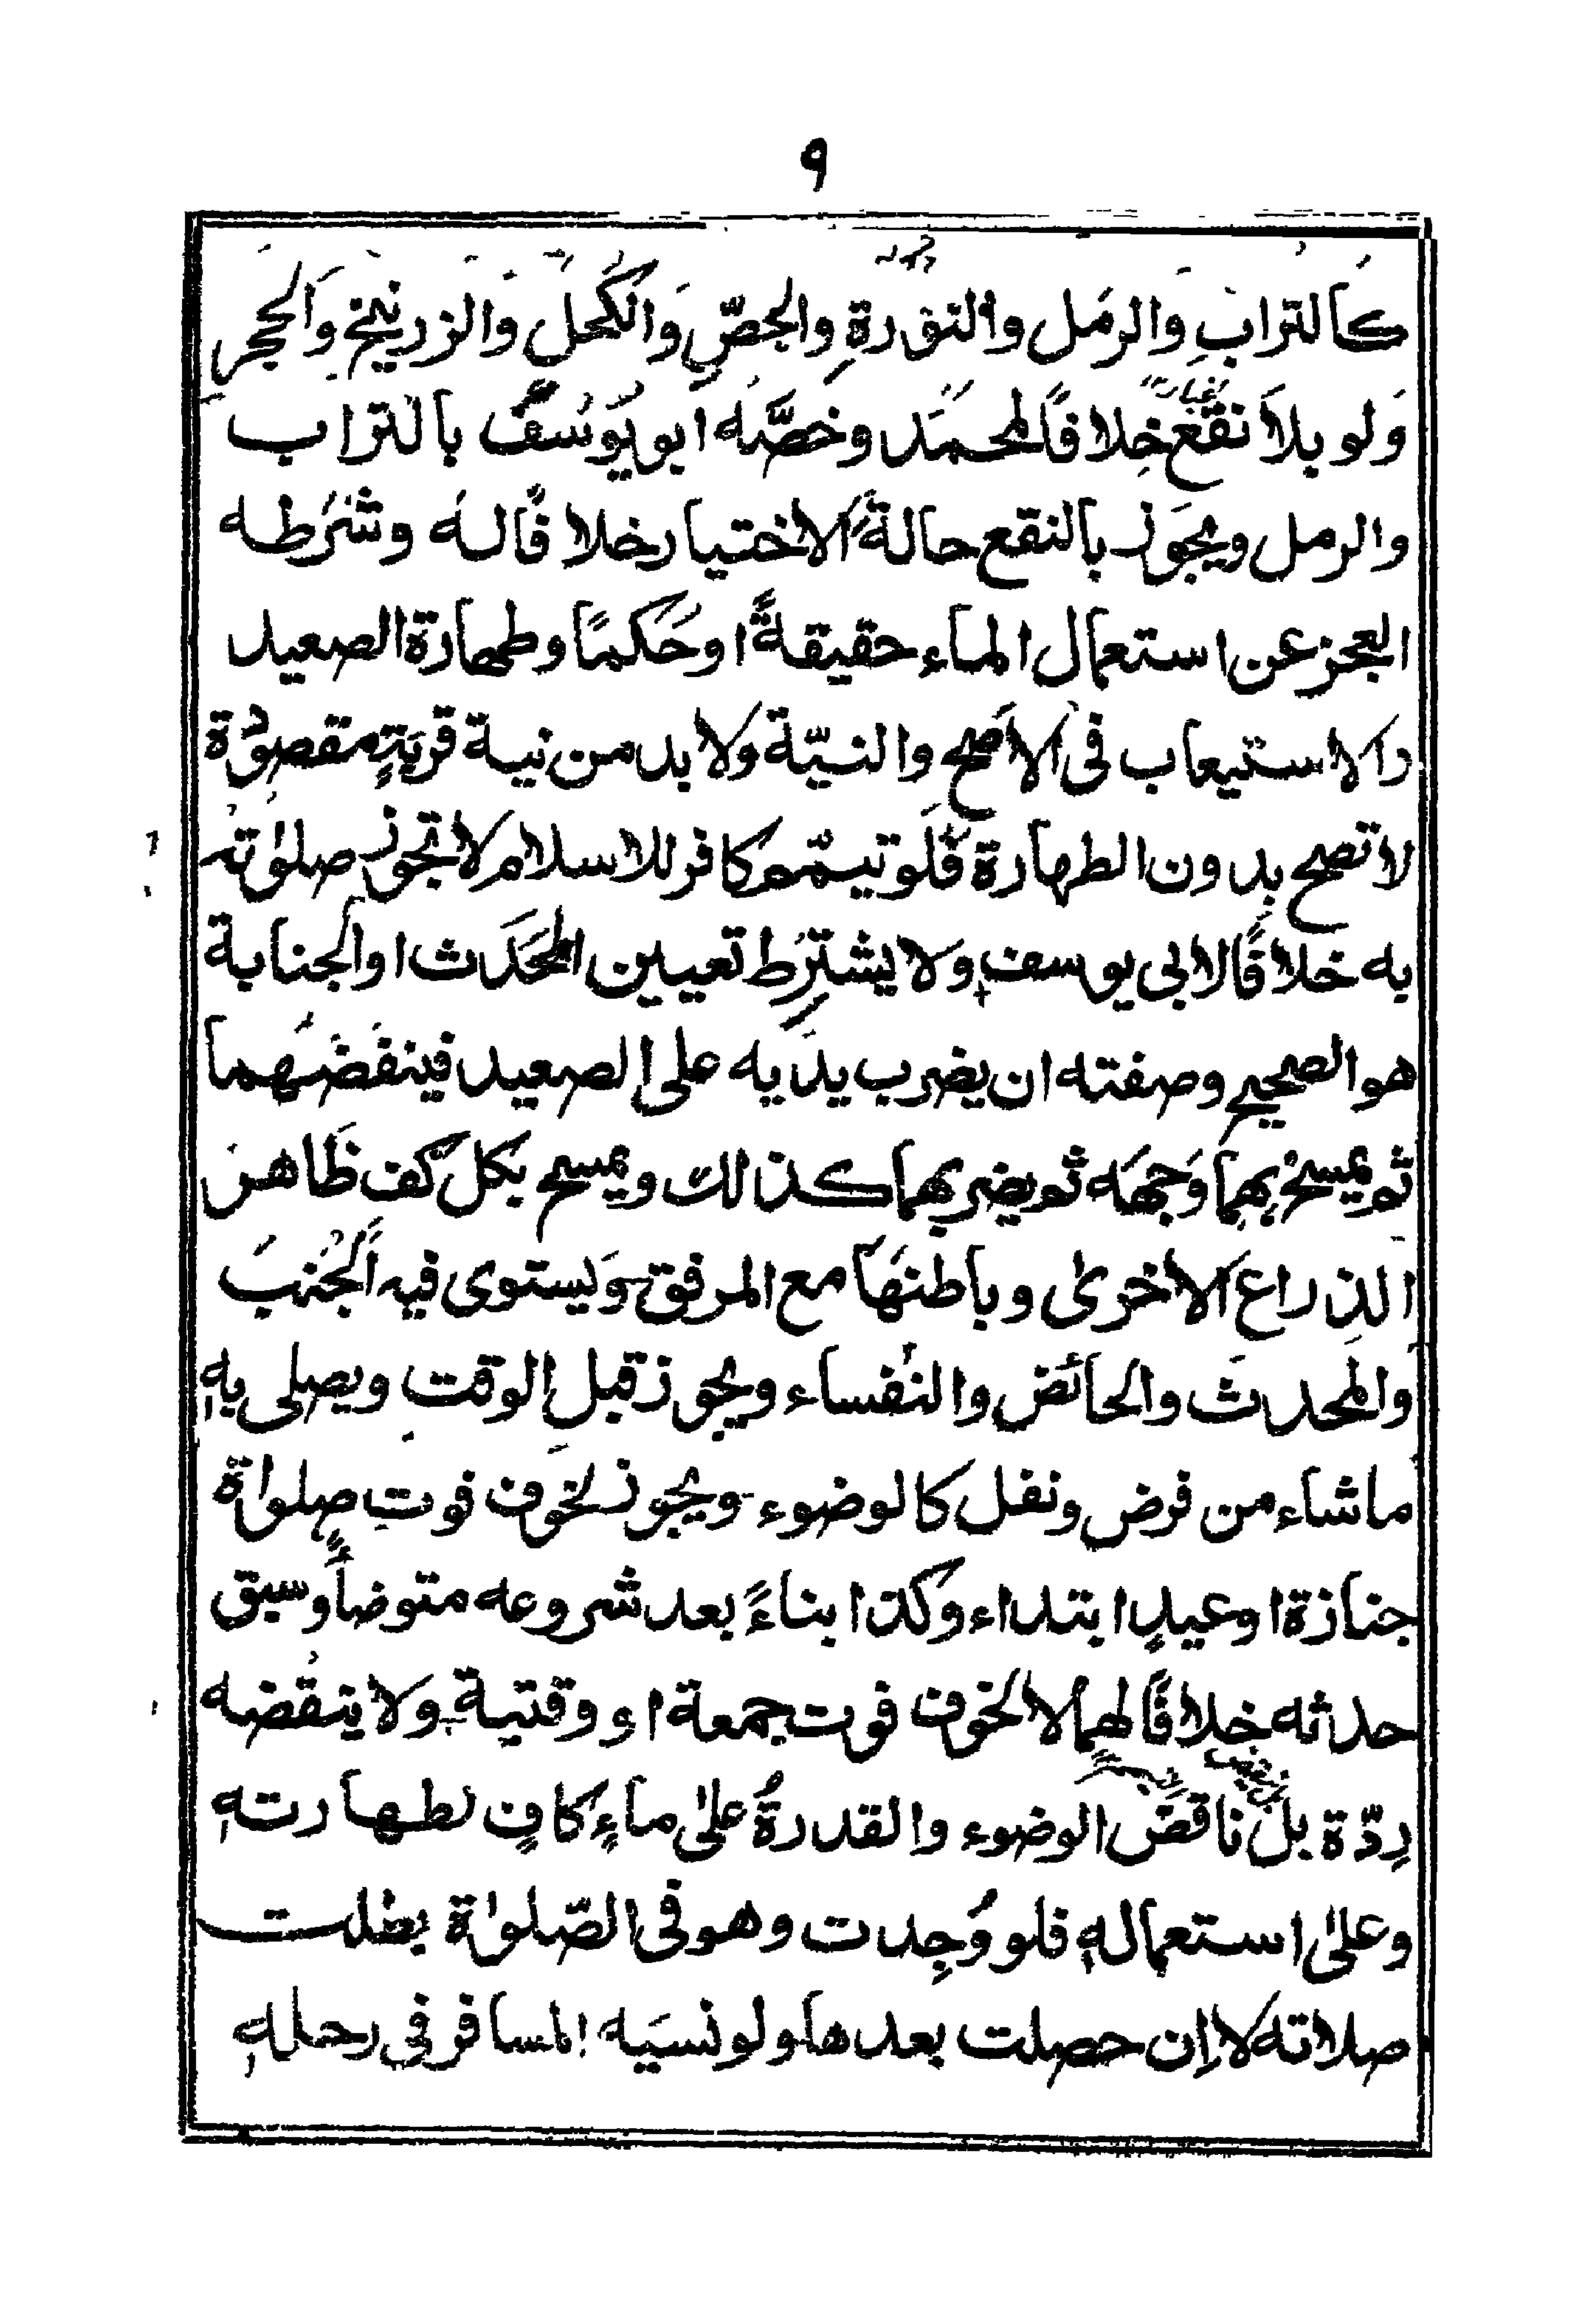 ٩
كالترابِ والرمل والنورةِ والجصِّ والكحل والزرنيخ والحجر
ولو بلا نقع خلافًا لمحمد وخصّه ابو يوسف بالتراب
والرمل ويجوز بالنقع حالة الاختيار خلافًا له وشرطه
العجز عن استعمال الماء حقيقةً او حكمًا وطهارة الصعيد
والاستيعاب فى الاصح والنيّة ولابد من نية قربةٍ مقصودة
لا تصح بدون الطهارة فلو تيمّم كافر للاسلام لا تجوز صلوٰته
به خلافًا لابى يوسف ولا يشترط تعيين الحَدَث او الجنابة
هو الصحيح وصفته ان يضرب يديه على الصعيد فينفضهما
ثم يمسح بهما وجهه ثم يضربهما كذالك ويمسح بكل كف ظاهر
الذراع الاخرىٰ وباطنها مع المرفق ويستوى فيه الجُنب
والمحدث والحائض والنفساء ويجوز قبل الوقت ويصلى بهٖ
ماشاء من فرض ونفل كالوضوء ويجوز لخوف فوت صلواة
جنازة او عيدٍ ابتداء وكذا بناءً بعد شروعه متوضأ وسبق
حدثه خلافًا لهما لا لخوف فوت جمعة او وقتية ولا ينقضه
رِدّة بل ناقض الوضوء والقدرةُ علىٰ ماءٍ كافٍ لطهارتهٖ
وعلىٰ استعمالهٖ فلو وُجِدت وهو فى الصّلوٰاة بطلت
صلاته لا اِن حصلت بعدها ولو نسيَه المسافر فى رحلهٖ